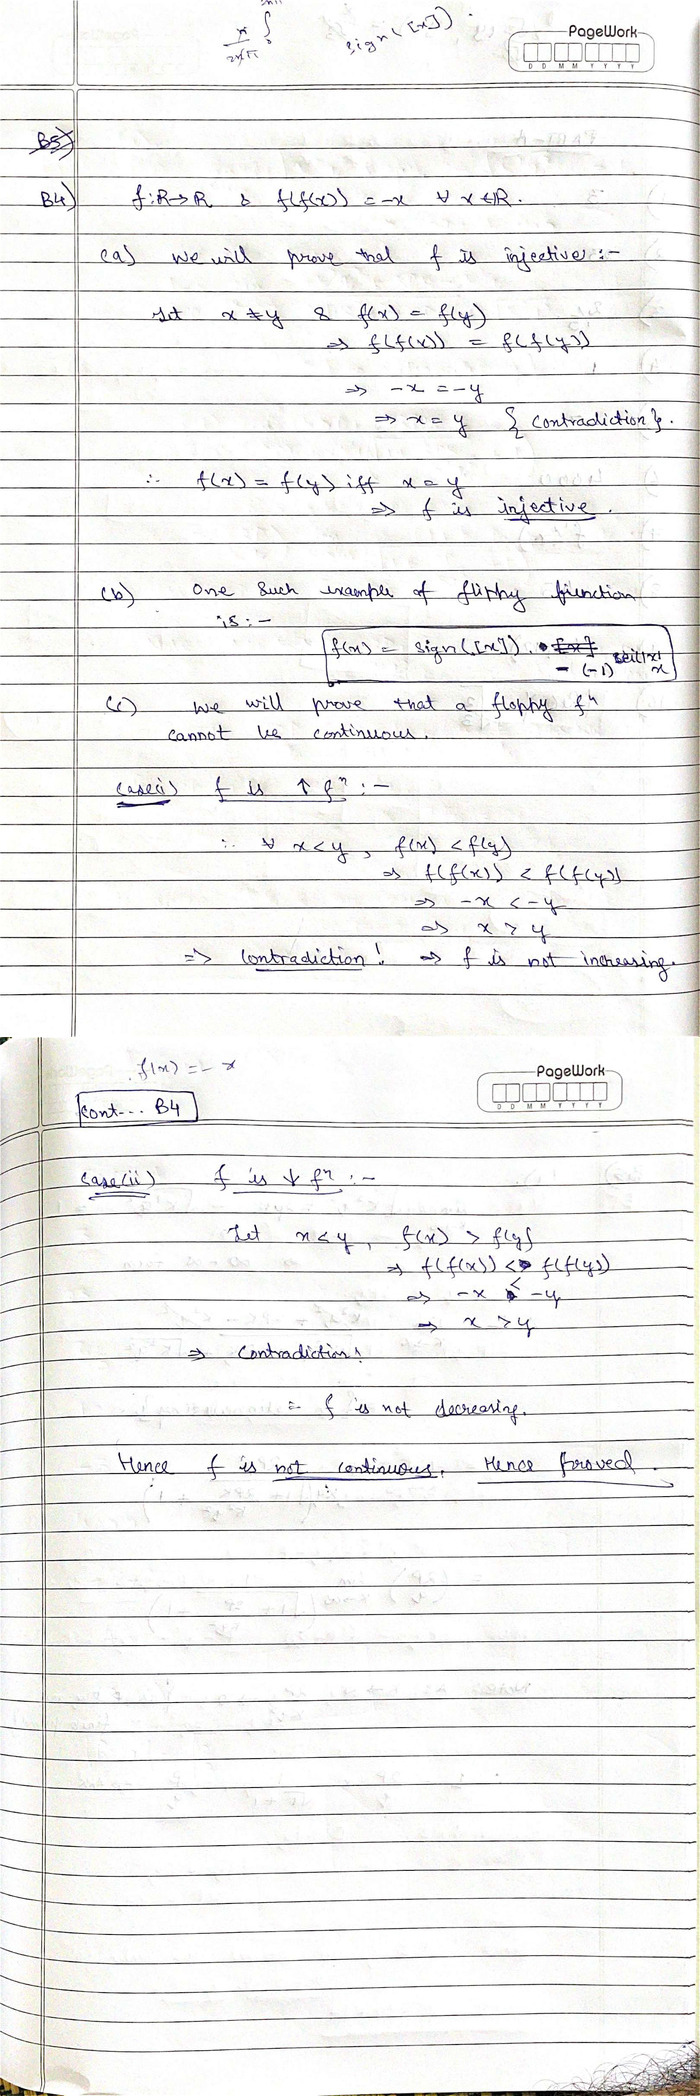 π/2xπ ∫ sign([x]).
PageWork
D D M M Y Y Y Y
B5)
B4) f:R→R & f(f(x)) = -x ∀ x ∈ R.
(a) We will prove that f is injective :-
Let x ≠ y & f(x) = f(y)
⇒ f(f(x)) = f(f(y))
⇒ -x = -y
⇒ x = y { Contradiction }.
∴ f(x) = f(y) iff x = y
⇒ f is injective.
(b) One such example of function
is :-
f(x) = sign([x]). [x]
- (-1) ceil|x| x
(c) We will prove that a floppy fⁿ
cannot be continuous.
Case(i) f is ↑ fⁿ :-
∴ ∀ x < y, f(x) < f(y)
⇒ f(f(x)) < f(f(y))
⇒ -x < -y
⇒ x > y
⇒ Contradiction! ⇒ f is not increasing.
f(x) = -x
PageWork
D D M M Y Y Y Y
Cont... B4
Case(ii) f is ↓ fⁿ :-
Let x < y, f(x) > f(y)
⇒ f(f(x)) < f(f(y))
⇒ -x < -y
⇒ x > y
⇒ Contradiction!
= f is not decreasing.
Hence f is not continuous. Hence proved.